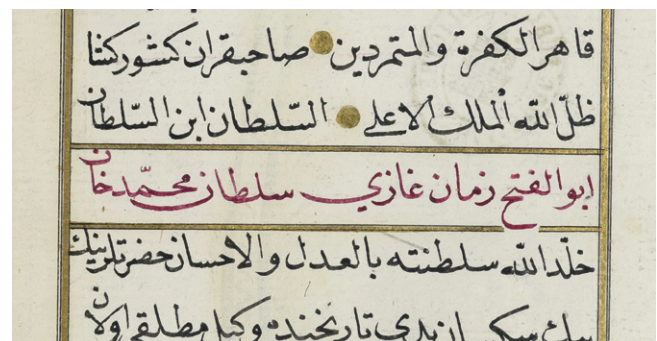 قاهر الكفرة والمتمردين صاحبقران كشوركشا
ظلّ الله الملك الاعلى السّلطان ابن السّلطان
ابو الفتح زمان غازي سلطان محمّد خان
خلّد الله سلطنته بالعدل والاحسان حضرتلرينك
بيك سكز ان يدي تاريخنده وكيل مطلقى اولان